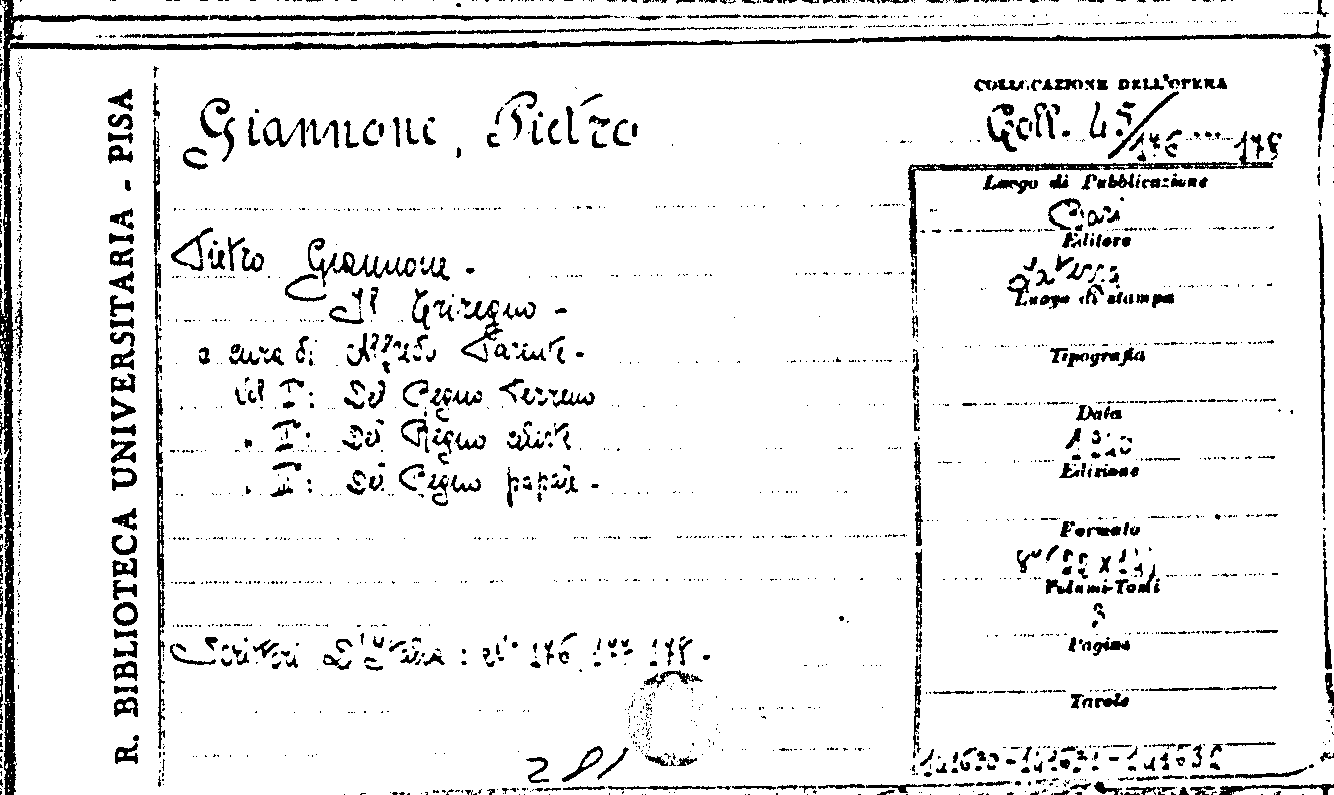 R. BIBLIOTECA UNIVERSITARIA - PISA
Giannone, Pietro
COLLOCAZIONE DELL'OPERA
Coll. 45/176 ... 178
Pietro Giannone -
Il Triregno -
a cura di Alfredo Parente -
Vol I: Del Regno terreno
" II: Del Regno celeste
" III: Del Regno papale -
Scrittori d'Italia: n¹ 176, 177 178 -
281
Luogo di Pubblicazione
Bari
Editore
Laterza
Luogo di stampa
Tipografia
Data
Edizione
Formato
Volumi-Tomi
3
Pagine
Tavole
141630-141631-141632